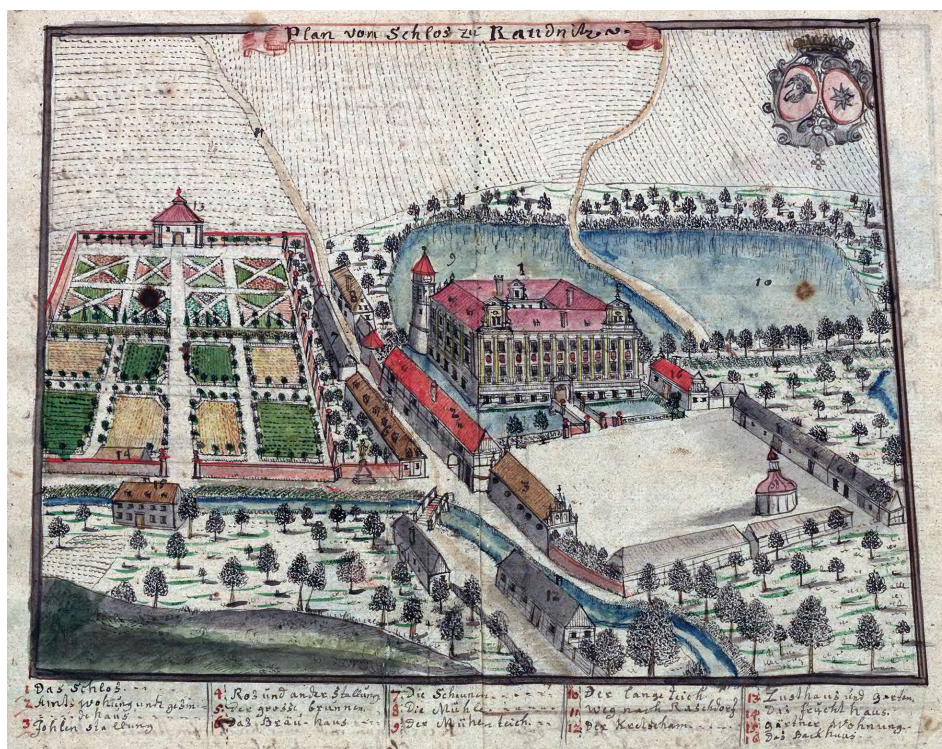 Plan vom Schlos zu Raudnitz
1 Das Schlos
2 Amts wohnung und gesin-
de haus
3 Fohlen stallung
4. Ros und ander Stallung
5. Der grosse brunnen
6 Das Bräu-haus
7. Die Scheunen
8. Die Mühle
9. Der Mühlen teich
10 Der lange teich
11. weg nach Raschdorf
12 Der Kretscham
13 Lusthaus und garten
14 Das feücht haus
15 gärtner Wohnung
16 Das Backhaus